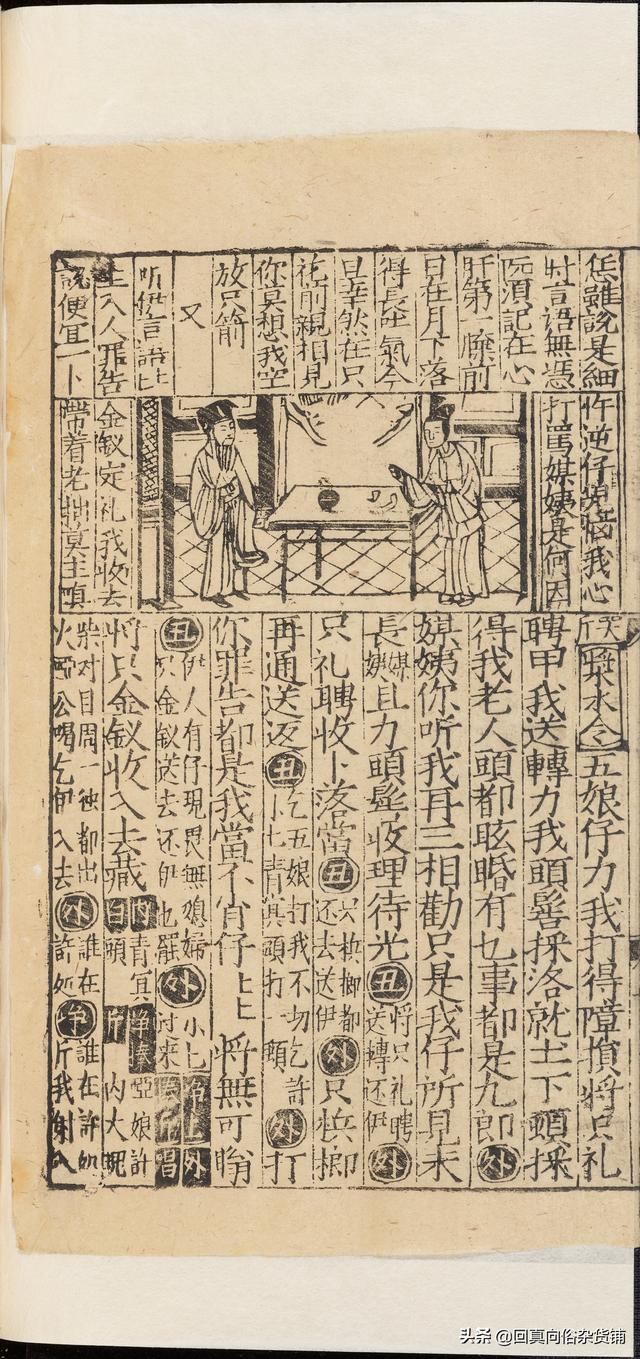 恁雖說是細
甘言語無憑
阮須記在心
肝第一條前
日在月下落
得長吐氣今
旦幸然在只
花前親相見
你莫想我空
放只箭
又
听伊言語上上
主人人罪告
說便宜一卜
忤逆仔兒惱我心
打罵媒姨是何因
金釵定礼我收去
帶着老
漿水令
五娘仔力我打得障損將只礼
聘甲我送轉力我頭鬃採洛就土下頭採
得我老人頭都眩昏有乜事都是九郎外
媒姨你听我再三相勸只是我仔所見未
長媒姨且力頭鬃收理待光丑將只礼聘送轉还伊外
只礼聘收卜落當丑只梹榔都还去送伊外只梹榔
再通送返丑乞五娘打我不切乞許小七青冥頭打一頭外打
你罪告都是我當不肖仔上上將無可
丑伊人有仔現畏無媳婦只金釵送去还伊也罷外小七过來
將只金釵收入去藏青冥頭 啞娘許内大
柴对目周一　都出火　公喝乞伊入去外誰在許如净誰在許如斤我
头条 @回真向俗杂货铺